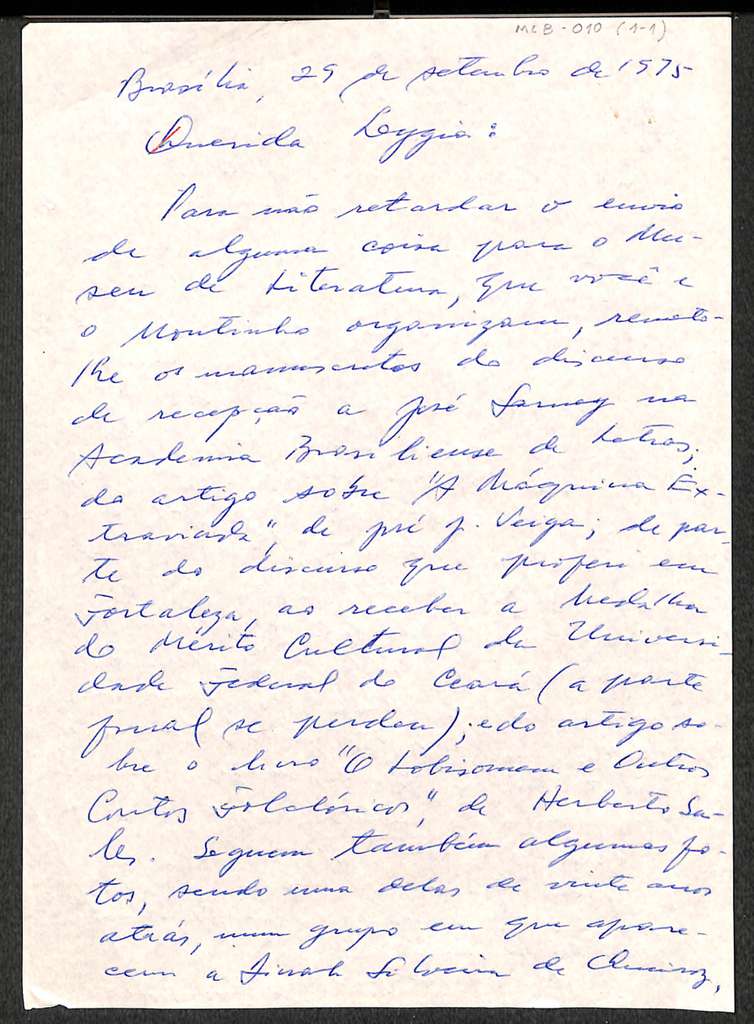 MLB-010 (1-1)
Brasília, 29 de setembro de 1975
Querida Lygia:
Para não retardar o envio
de alguma coisa para o Mu-
seu de Literatura, que você e
o Moutinho organizam, remeto-
lhe os manuscritos do discurso
de recepção a José Sarney na
Academia Brasiliense de Letras;
do artigo sôbre "A Máquina Ex-
traviada", de José J. Veiga; de par-
te do discurso que proferi em
Fortaleza, ao receber a Medalha
do Mérito Cultural da Universi-
dade Federal do Ceará (a parte
final se perdeu); e do artigo so-
bre o livro "O Lobisomem e Outros
Contos Folclóricos", de Herberto Sa-
les. Seguem também algumas fo-
tos, sendo uma delas de vinte anos
atrás, num grupo em que apare-
cem a Dinah Silveira de Queiroz,